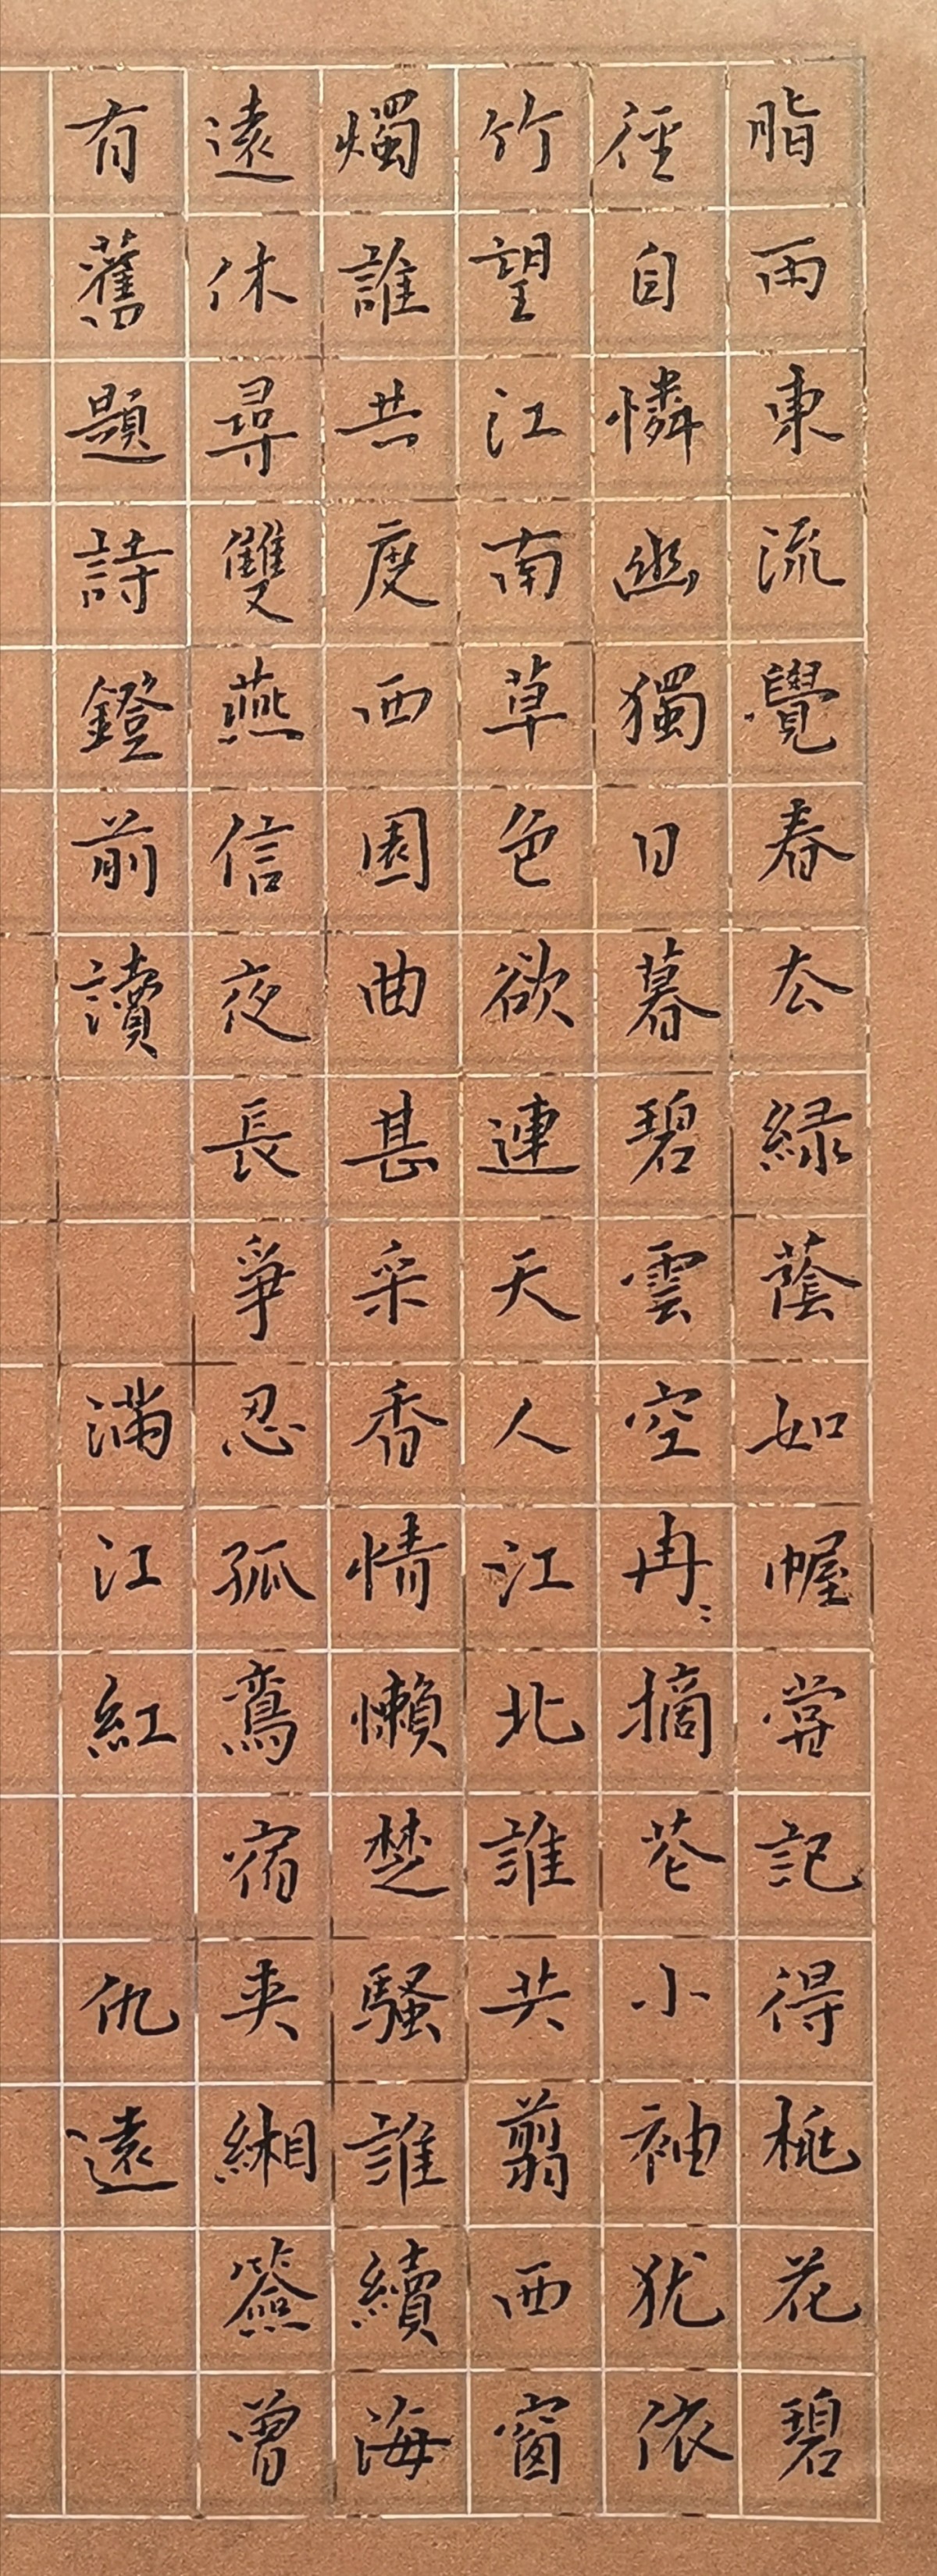 脂雨東流覺春厺緑蔭如幄嘗記得桃花碧
徑自憐幽獨日暮碧雲空冉〻摘芲小袖犹依
竹望江南草色欲連天人江北誰共翦西窗
燭誰共度西園曲甚采香情懶楚騷誰續海
遠休尋雙燕信夜長爭忍孤鸞宿夾緗簽曾
有舊題詩鐙前讀 滿江紅 仇遠